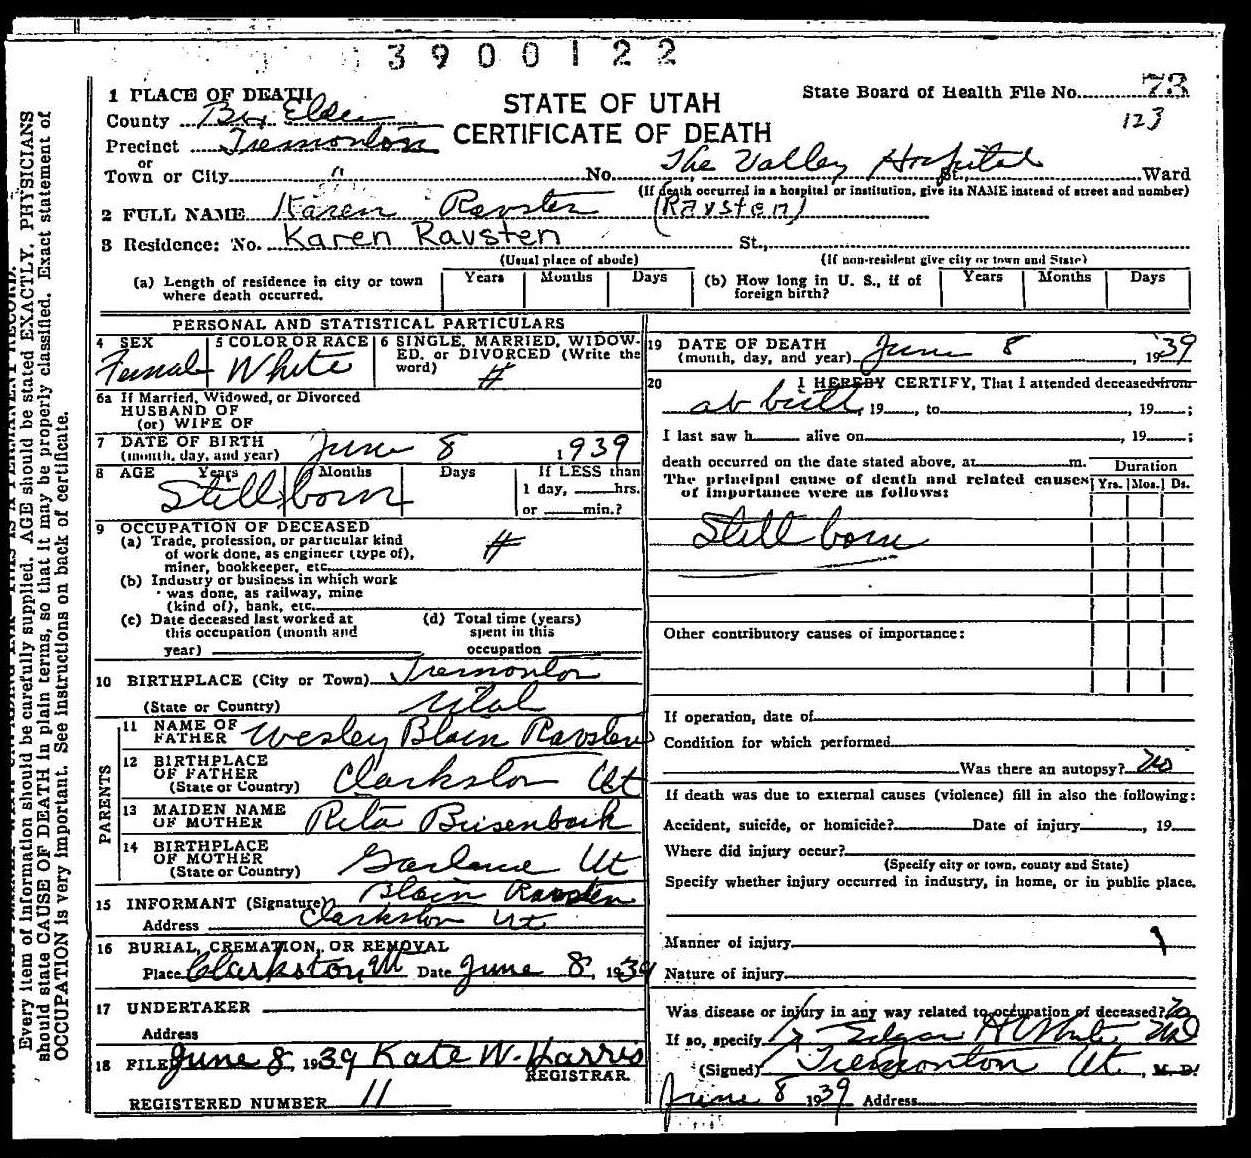 3900122
1 PLACE OF DEATH
County Box Elder
STATE OF UTAH
State Board of Health File No. 73
123
Precinct Tremonton
CERTIFICATE OF DEATH
or
Town or City " No. The Valley Hospital St., Ward
(If death occurred in a hospital or institution, give its NAME instead of street and number)
2 FULL NAME Karen Ravsten (Ravsten)
3 Residence: No. Karen Ravsten St.,
(Usual place of abode) (If non-resident give city or town and State)
(a) Length of residence in city or town where death occurred. Years Months Days (b) How long in U. S., if of foreign birth? Years Months Days
PERSONAL AND STATISTICAL PARTICULARS
4 SEX Female
5 COLOR OR RACE White
6 SINGLE, MARRIED, WIDOW-
ED, or DIVORCED (Write the
word) #
6a If Married, Widowed, or Divorced
HUSBAND OF
(or) WIFE OF
7 DATE OF BIRTH
(month, day, and year) June 8 1939
8 AGE Years Months Days If LESS than
Stillborn 1 day, hrs.
or min.?
9 OCCUPATION OF DECEASED
(a) Trade, profession, or particular kind
of work done, as engineer (type of),
miner, bookkeeper, etc. #
(b) Industry or business in which work
was done, as railway, mine
(kind of), bank, etc.
(c) Date deceased last worked at
this occupation (month and
year)
(d) Total time (years)
spent in this
occupation
10 BIRTHPLACE (City or Town) Tremonton
(State or Country) Utah
PARENTS
11 NAME OF
FATHER Wesley Blain Ravsten
12 BIRTHPLACE
OF FATHER
(State or Country) Clarkston Ut
13 MAIDEN NAME
OF MOTHER Rita
14 BIRTHPLACE
OF MOTHER
(State or Country) Garland Ut
15 INFORMANT (Signature) Blain Ravsten
Address Clarkston Ut
16 BURIAL, CREMATION, OR REMOVAL
Place Clarkston, Ut Date June 8, 1939
17 UNDERTAKER
Address
18 FILED June 8, 1939 Kate W. Harris
REGISTRAR
REGISTERED NUMBER 11
19 DATE OF DEATH
(month, day, and year) June 8, 1939
20 I HEREBY CERTIFY, That I attended deceased from
at birth, 19, to , 19 ;
I last saw h alive on , 19 ;
death occurred on the date stated above, at m.
Duration
The principal cause of death and related causes
of importance were as follows: Yrs. Mos. Ds.
Still born
Other contributory causes of importance:
If operation, date of
Condition for which performed
Was there an autopsy? no
If death was due to external causes (violence) fill in also the following:
Accident, suicide, or homicide? Date of injury , 19
Where did injury occur?
(Specify city or town, county and State)
Specify whether injury occurred in industry, in home, or in public place.
Manner of injury
Nature of injury
Was disease or injury in any way related to occupation of deceased? no
If so, specify Edgar H White MD
(Signed) Tremonton Ut., M. D.
June 8 1939 Address
Every item of information should be carefully supplied. AGE should be stated EXACTLY. PHYSICIANS
should state CAUSE OF DEATH in plain terms, so that it may be properly classified. Exact statement of
OCCUPATION is very important. See instructions on back of certificate.